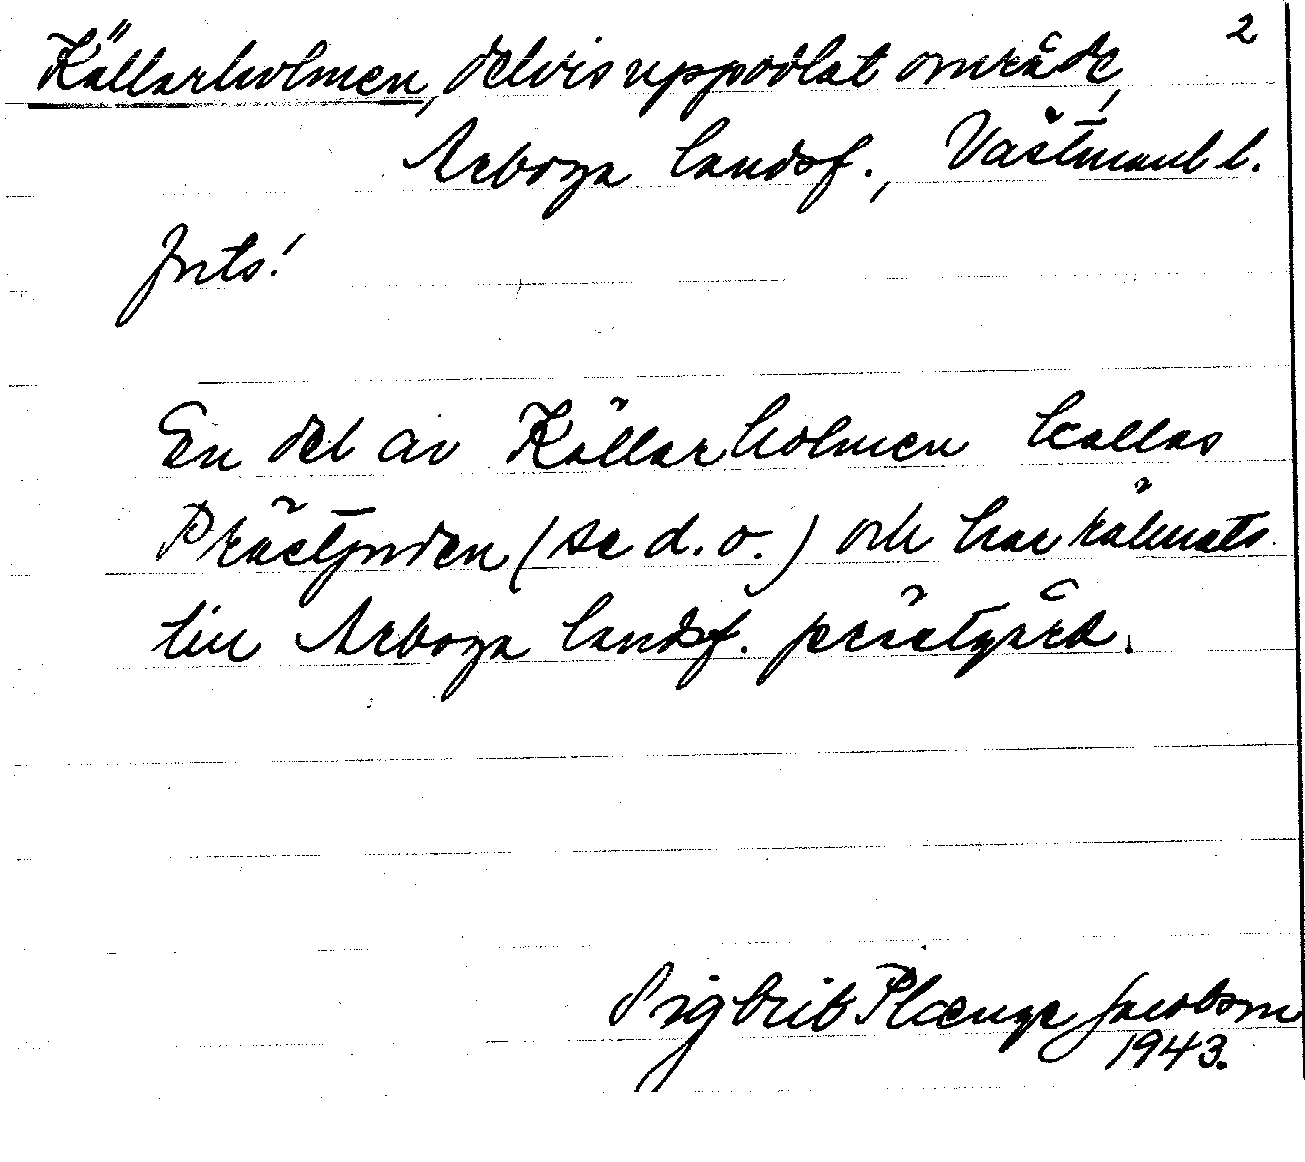 2
Källarholmen, delvis uppodlat område,
Arboga landsf., Västmanl. l.
Forts.!
En del av Källarholmen kallas
Prästjorden (se d. o.) och har räknats
till Arboga landsf. prästgård.
Sigbrit Plænge Jacobson
1943.